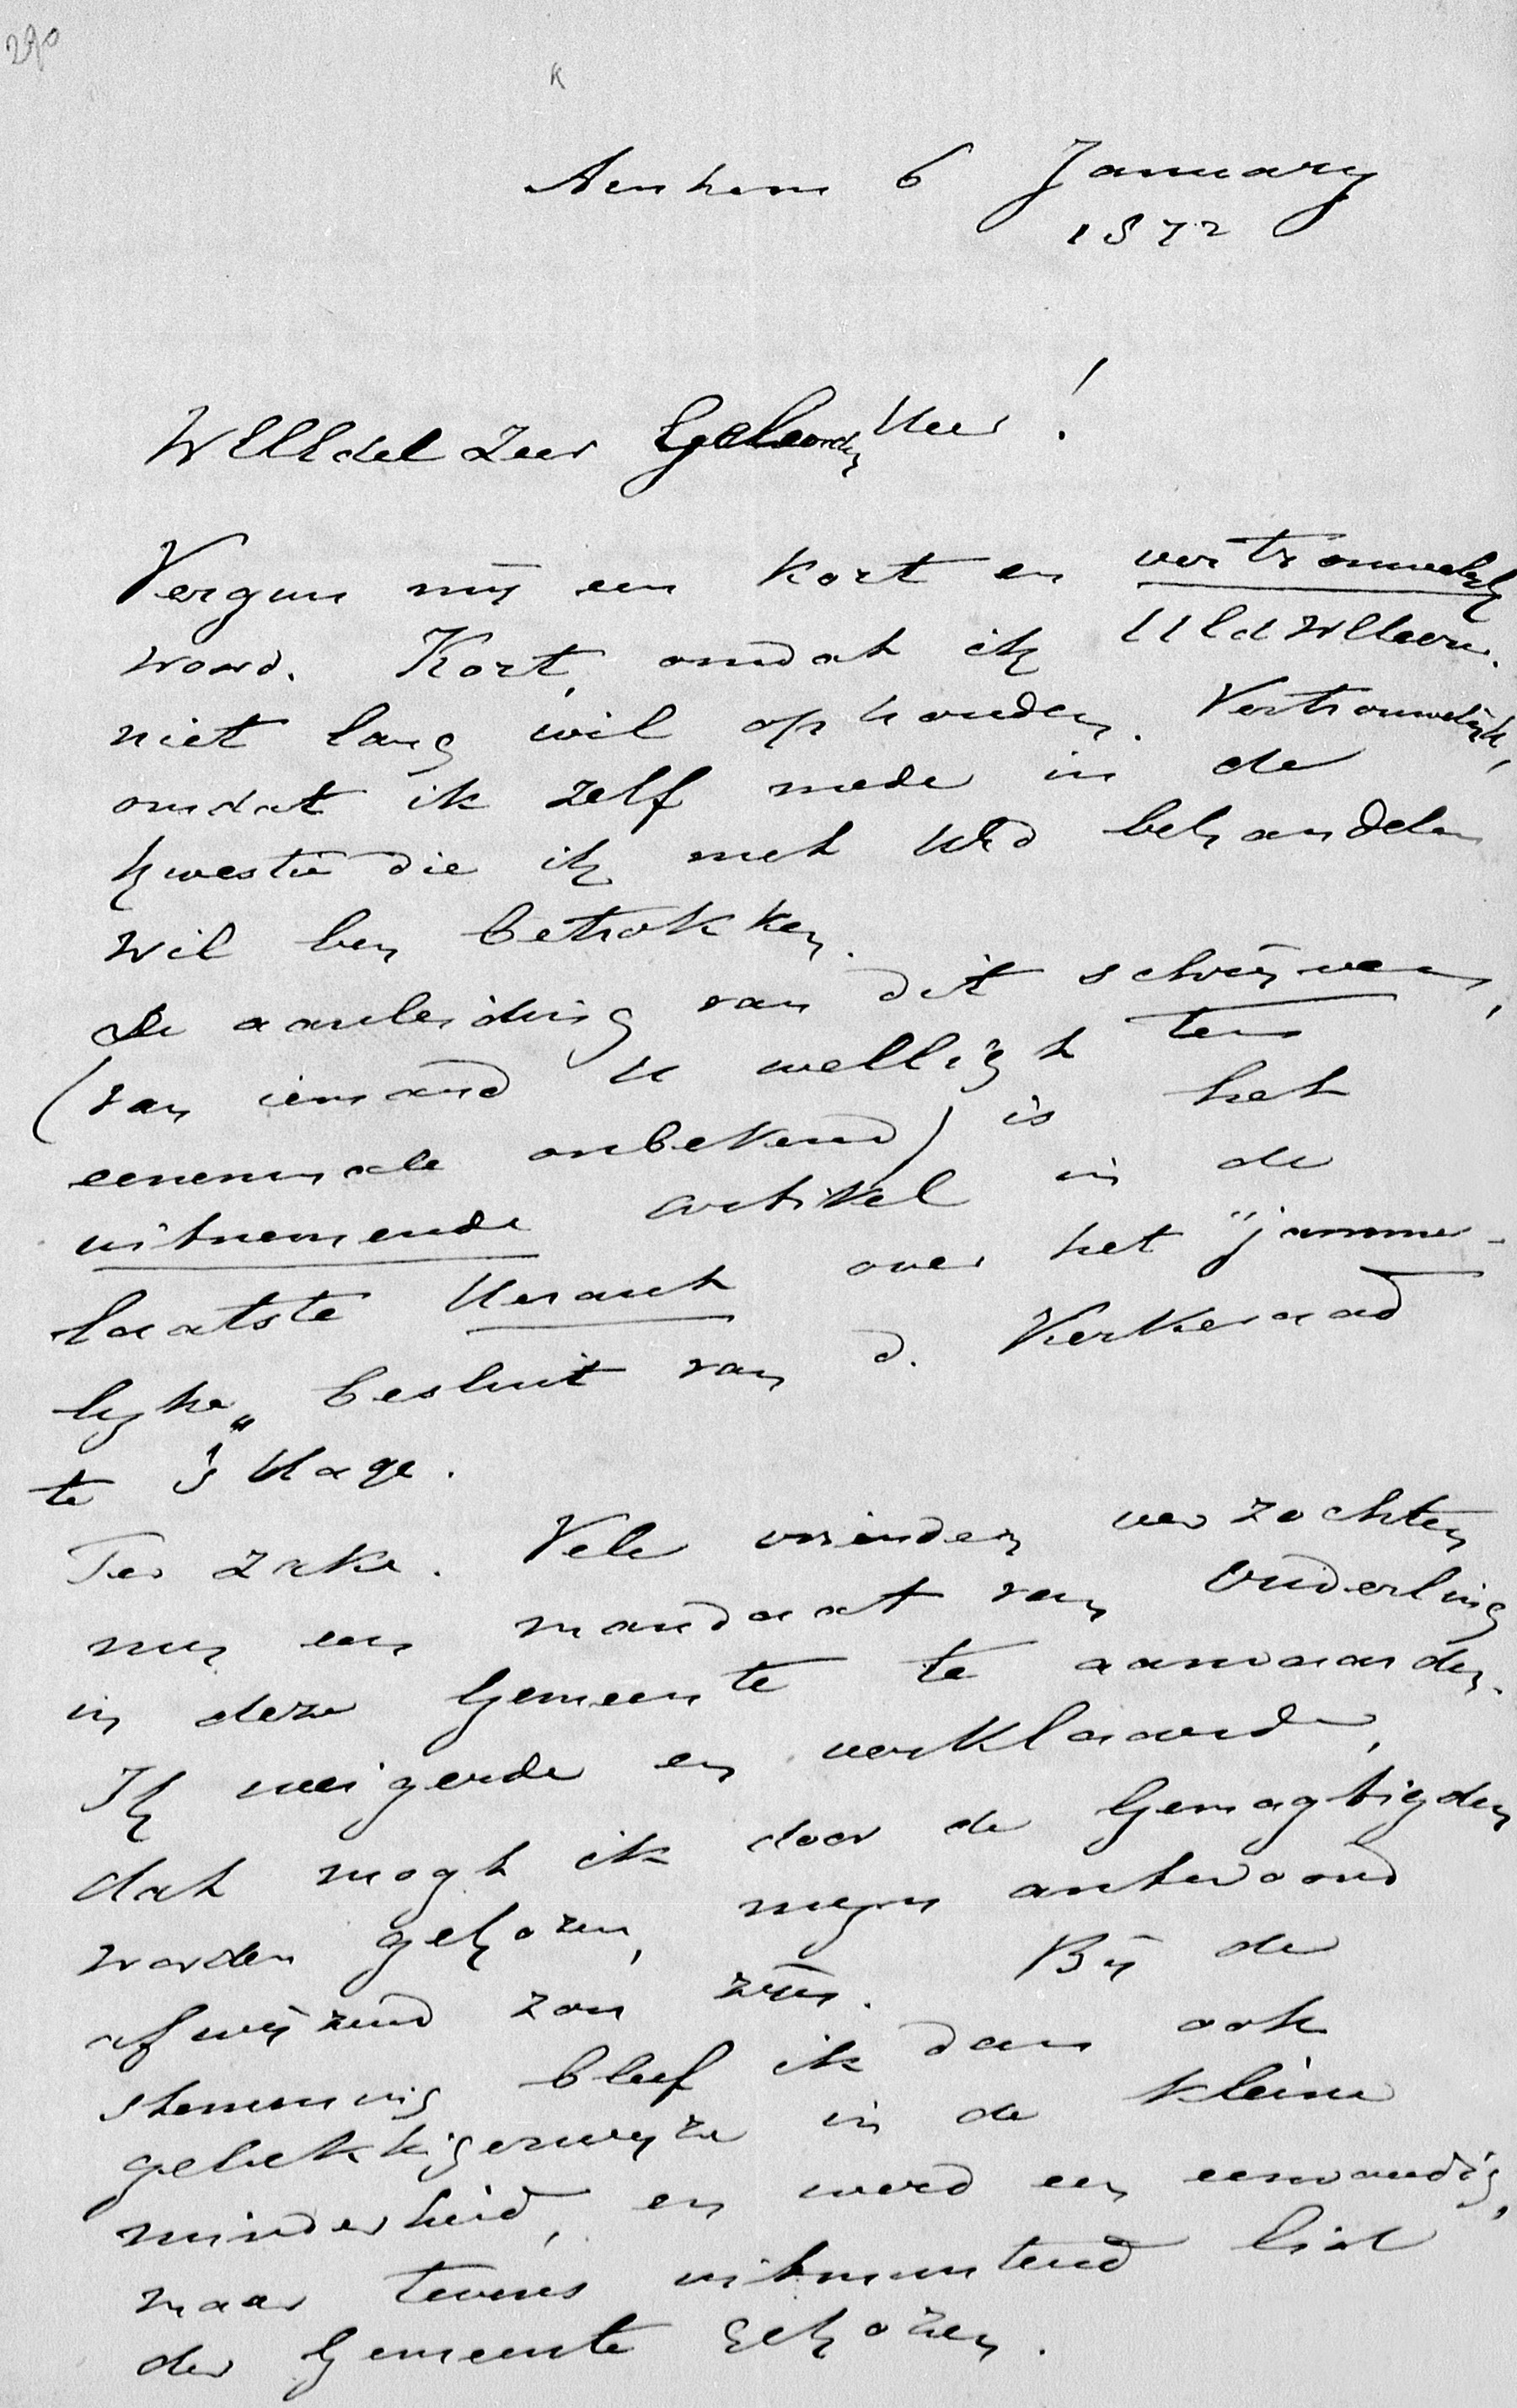 290
Arnhem 6 January
1872
WelEdel Zeer Geleerden Heer!
Vergun mij een kort en vertrouwelijk
woord. Kort, omdat ik
niet lang wil ophouden. Vertrouwelijk,
omdat ik zelf mede in de
kwestie die ik met UEd behandelen
wil ben betrokken.
De aanleiding van dit schrijven,
(van iemand U welligt ten
eenenmale onbekend) is het
uitnemende artikel in de
laatste Heraut over het "jammer-
lyke" besluit van d. Kerkeraad
te 's Hage.
Ter zake. Vele vrienden verzochten
my een mandaat van Ouderling
in deze Gemeente te aanvaarden.
Ik weigerde en verklaarde,
dat mogt ik door de Gemagtigden
worden gekozen, myn antwoord
afwijzend zou zijn. Bij de
stemming bleef ik dan ook
gelukkigerwyze in de kleine
minderheid, en werd een eenvoudig,
maar tevens uitmuntend lid
der Gemeente gekozen.